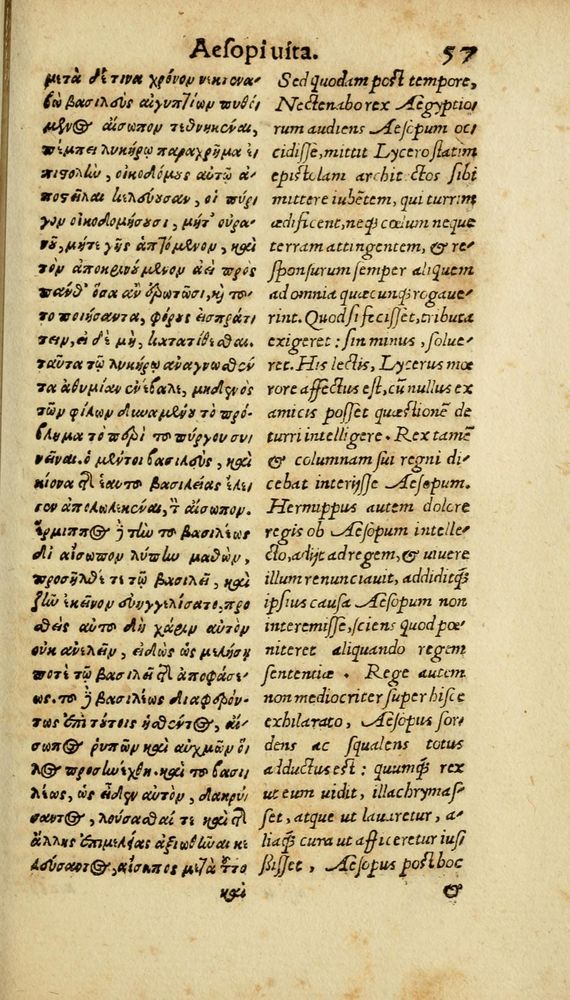 Aesopi uita. 57
μετὰ δέ τινα χρόνον νεκτενα-
βὼ βασιλεὺς αἰγυπτίων πυθό-
μενος αἴσωπον τεθνηκέναι,
πέμπει λυκήρῳ παραχρῆμα ἐ-
πιστολὴν, οἰκοδόμους αὐτῷ ἀ-
ποστεῖλαι κελεύουσαν, οἳ πύρ-
γον οἰκοδομήσουσι, μήτ' οὐρα-
νοῦ, μήτε γῆς ἁπτόμενον, καὶ
τὸν ἀποκρινούμενον ἀεὶ πρὸς
πάνθ' ὅσα ἂν ἐρωτῶσι, καὶ το-
το ποιήσαντα, φόρους εἰσπράτ-
τειν, εἰ δὲ μὴ, κατατίθεσθαι.
ταῦτα τῷ λυκήρῳ ἀναγνωσθέν
τα ἀθυμίαν ἐνέβαλε, μηδενὸς
τῶν φίλων δυναμένου τὸ πρό-
βλημα τὸ περὶ τοῦ πύργου συνι
νέναι. ὁ μέντοι βασιλεὺς, καὶ
κίονα τῆς ἑαυτοῦ βασιλείας ἔλε
γον ἀπολωλεκέναι, τὸν αἴσωπον.
ἕρμιππος δὲ τὴν τοῦ βασιλέως
δι' αἴσωπον λύπην μαθὼν,
προσῆλθέ τε τῷ βασιλεῖ, καὶ
ζῆν ἐκεῖνον εὐηγγελίσατο, προ
θεὶς αὐτοῦ δὴ χάριν αὐτὸν
οὐκ ἀνελεῖν, εἰδὼς ὡς μελήσῃ
ποτὲ τῷ βασιλεῖ τῆς ἀποφάσε-
ως. τοῦ δὲ βασιλέως διαφερόν-
τως ἐπὶ τούτοις ἡσθέντος, αἴ-
σωπος ῥυπῶν καὶ αὐχμῶν ὅ-
λος προσηνέχθη. καὶ τοῦ βασι-
λέως, ὡς εἶδεν αὐτὸν, δακρύ-
σαντος, λούσασθαί τε καὶ τῆς
ἄλλης ἐπιμελείας ἀξιωθῆναι κε
λεύσαντος, αἴσωπος μετὰ τοῦτο
καὶ
Sed quodam post tempore,
Nectenabo rex Aegyptio
rum audiens Aesopum oc
cidisse, mittit Lycero statim
epistolam archit ctos sibi
mittere iubẽtem, qui turrim
ædificent, neq; cœlum neque
terram attingentem, & re-
sponsurum semper aliquem
ad omnia quæcunq; rogaue-
rint. Quod si fecisset, tributa
exigeret: sin minus, solue-
ret. His lectis, Lycerus mœ
rore affectus est, cũ nullus ex
amicis posset quæstionẽ de
turri intelligere. Rex tamẽ
& columnam sui regni di-
cebat interijsse Aesopum.
Hermippus autem dolore
regis ob Aesopum intelle-
cto, adijt ad regem, & uiuere
illum renunciauit, addiditq;
ipsius causa Aesopum non
interemisse, sciens quod pœ-
niteret aliquando regem
sententiæ. Rege autem
non mediocriter super hisce
exhilarato, Aesopus sor-
dens ac squalens totus
adductus est: quumq; rex
ut eum uidit, illachrymas-
set, atque ut lauaretur, a-
liaq; cura ut afficeretur ius-
sisset, Aesopus post hoc
&